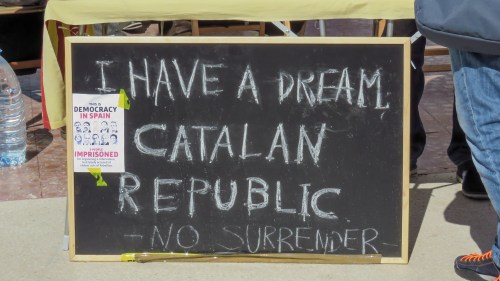 I HAVE A DREAM,
CATALAN
REPUBLIC
- NO SURRENDER -
THIS IS
DEMOCRACY
IN SPAIN
IMPRISONED